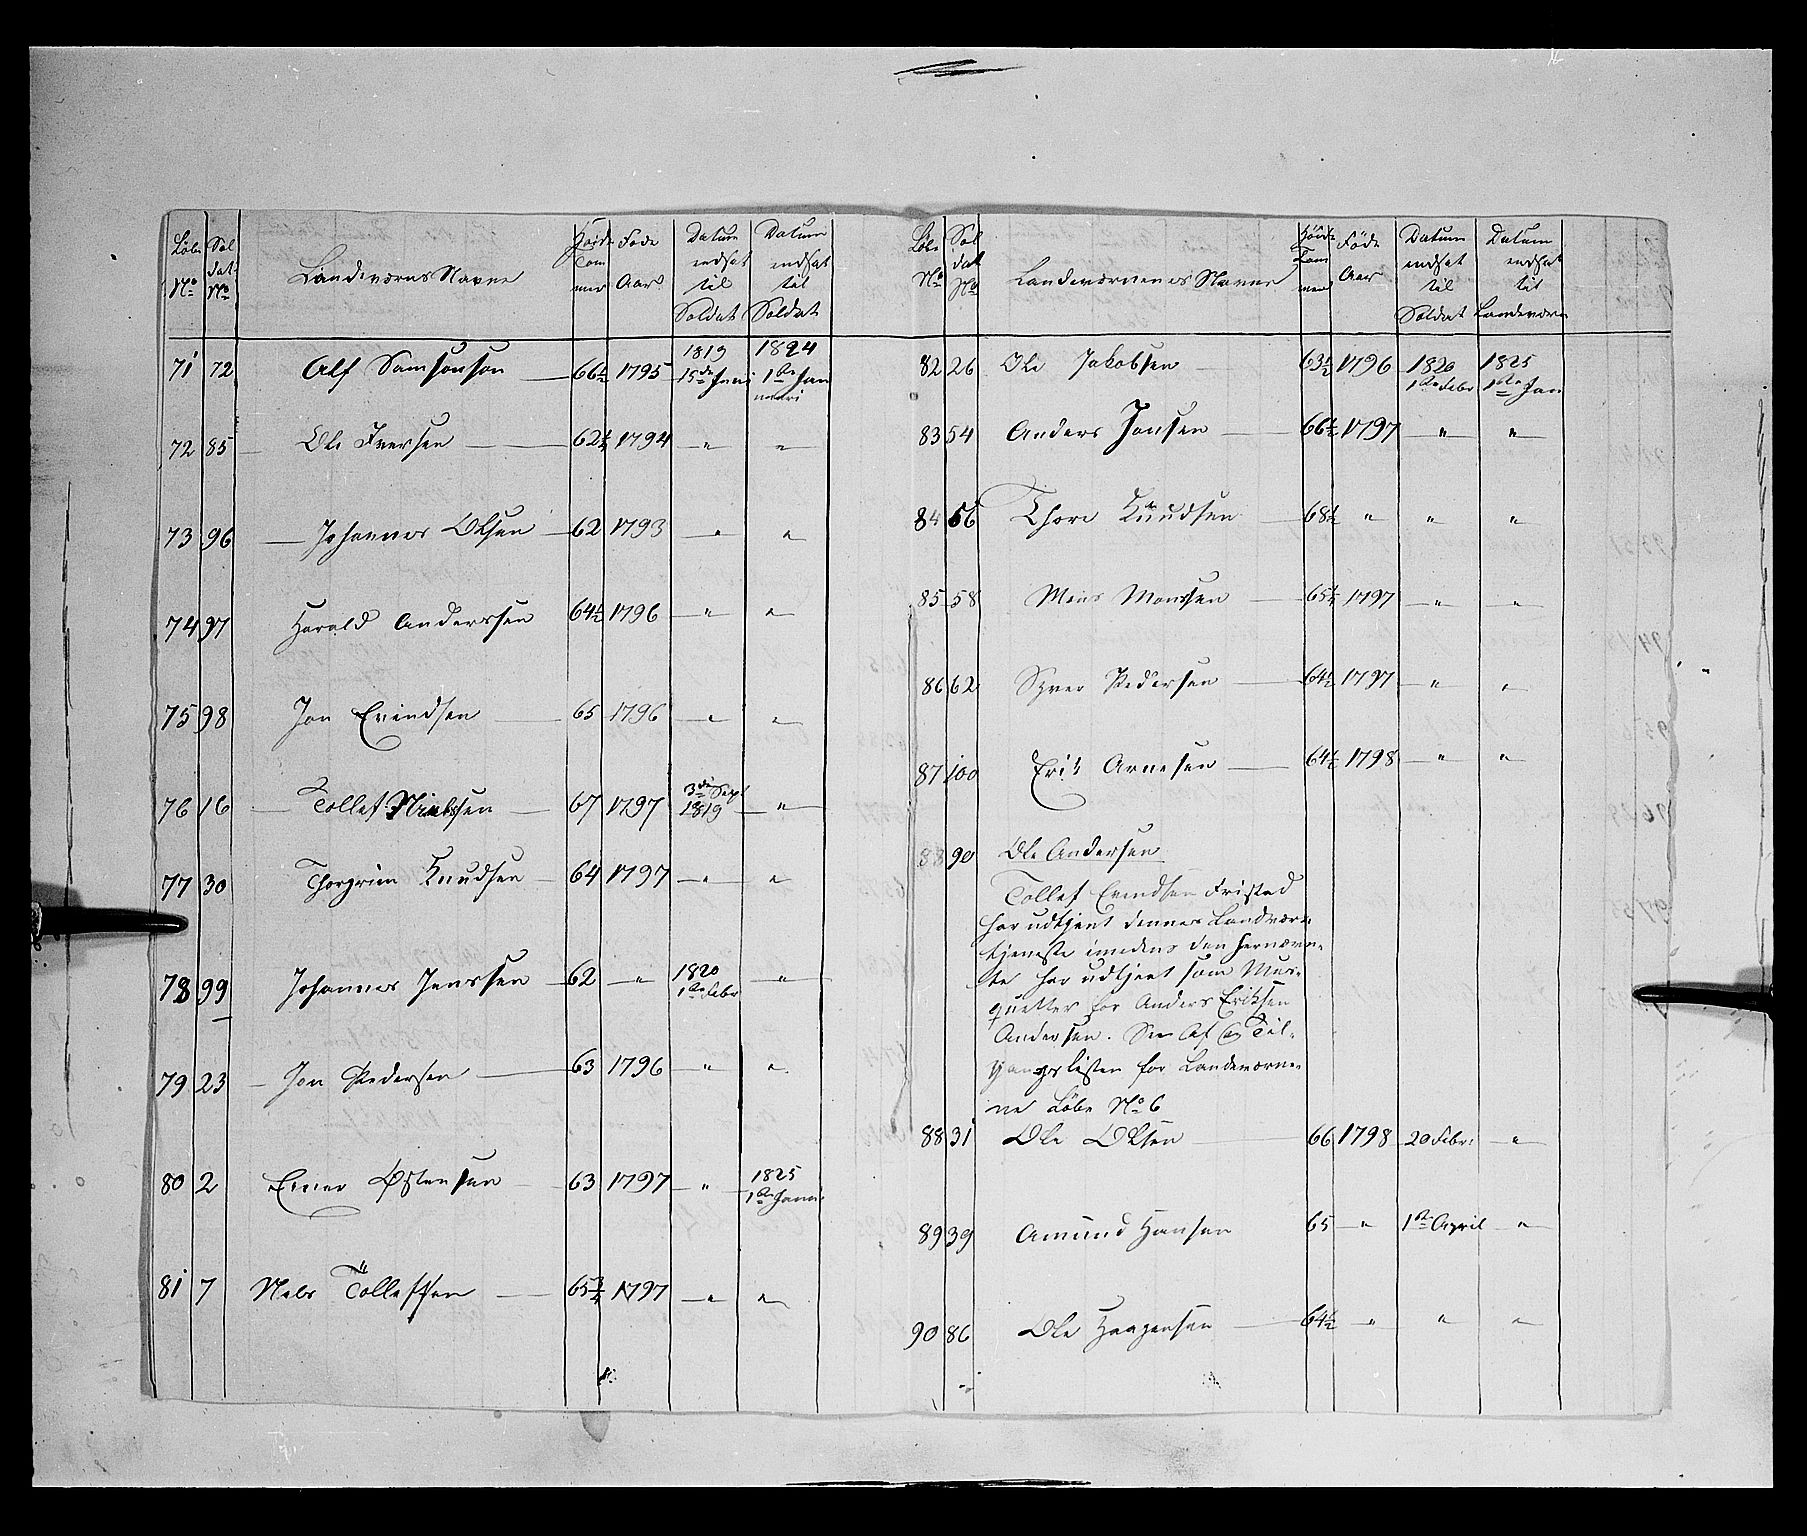 Løbe No | Soldat No | Landeværns Navne | Høide Tommer | Føde Aar | Datum indsat til Soldat | Datum indsat til Soldat
71 | 72 | Alf Samsonson | 66½ | 1795 | 1819 15de Juni | 1824 1ste Januari
72 | 85 | Ole Iversen | 62¼ | 1794 | " | "
73 | 96 | Johannes Olsen | 62 | 1793 | " | "
74 | 97 | Harald Anderssen | 64½ | 1796 | " | "
75 | 98 | Jon Evindsen | 65 | 1796 | " | "
76 | 16 | Tollef Nielssen | 67 | 1797 | 3de Sept 1819 | "
77 | 30 | Thorgrim Knudsen | 64 | 1797 | " | "
78 | 99 | Johannes Jenssen | 62 | " | 1820 1ste Febr | "
79 | 23 | Jon Pedersen | 63 | 1796 | " | "
80 | 2 | Einer Østensen | 63 | 1797 | " | 1825 1ste Janu
81 | 7 | Nels Tollefsen | 65¾ | 1797 | " | "
Løbe No | Soldat No | Landeværnenes Navne | Høide Tommer | Føde Aar | Datum indsat til Soldat | Datum indsat til Landeværn
82 | 26 | Ole Jakobsen | 63½ | 1796 | 1820 1ste Febr | 1825 1ste Jan
83 | 54 | Anders Jonsen | 66½ | 1797 | " | "
84 | 56 | Thore Knudsen | 68½ | " | " | "
85 | 58 | Mons Monssen | 65¼ | 1797 | " | "
86 | 62 | Syver Pedersen | 64½ | 1797 | " | "
87 | 100 | Erik Arnesen | 64½ | 1798 | " | "
88 | 90 | Ole Andersen
Tollef Evindsen Fristad
har udtjent dennes Landværn
tjeneste imedens den hernævn-
te har udtjent som Mus-
quetter for Anders Eriksen
Andersen. See Af & Til-
gangslisten for Landeværne-
ne Løbe No 6
88 | 31 | Ole Olsen | 66 | 1798 | 20 Febr: | "
89 | 39 | Amund Hansen | 65 | " | 1ste April | "
90 | 86 | Ole Haagensen | 64½ | " | " | "